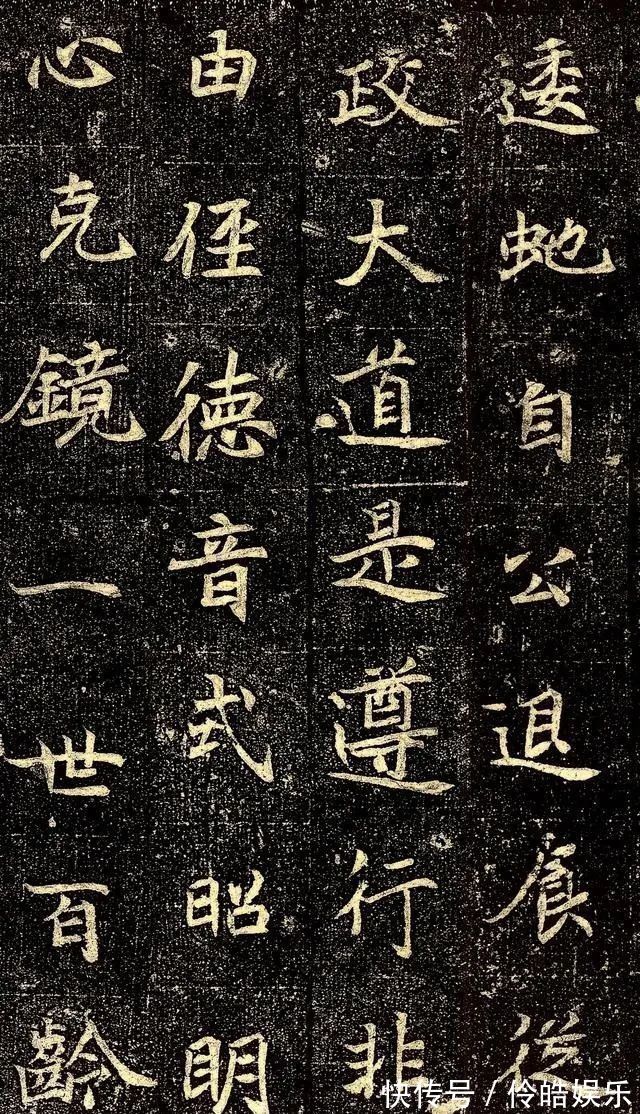 逶虵自公退食從
政大道是遵行非
由徑德音式昭明
心克鏡一世百齡
快传号/伶皓娱乐